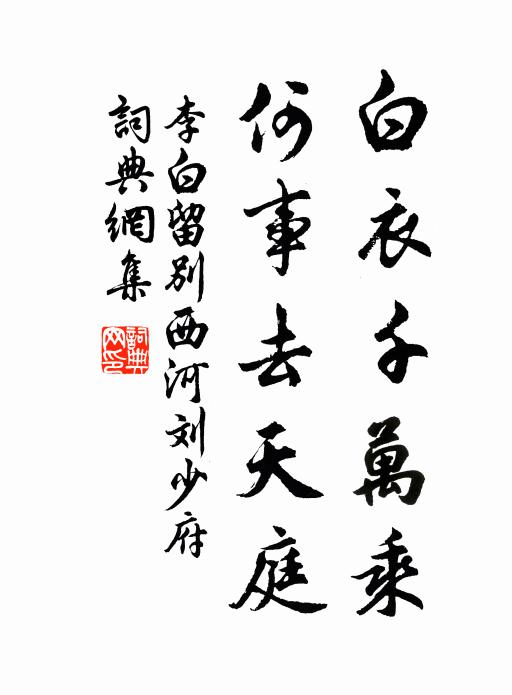 白衣千萬乘
何事去天庭
李白留别西河刘少府
詞典網集
詞典網印